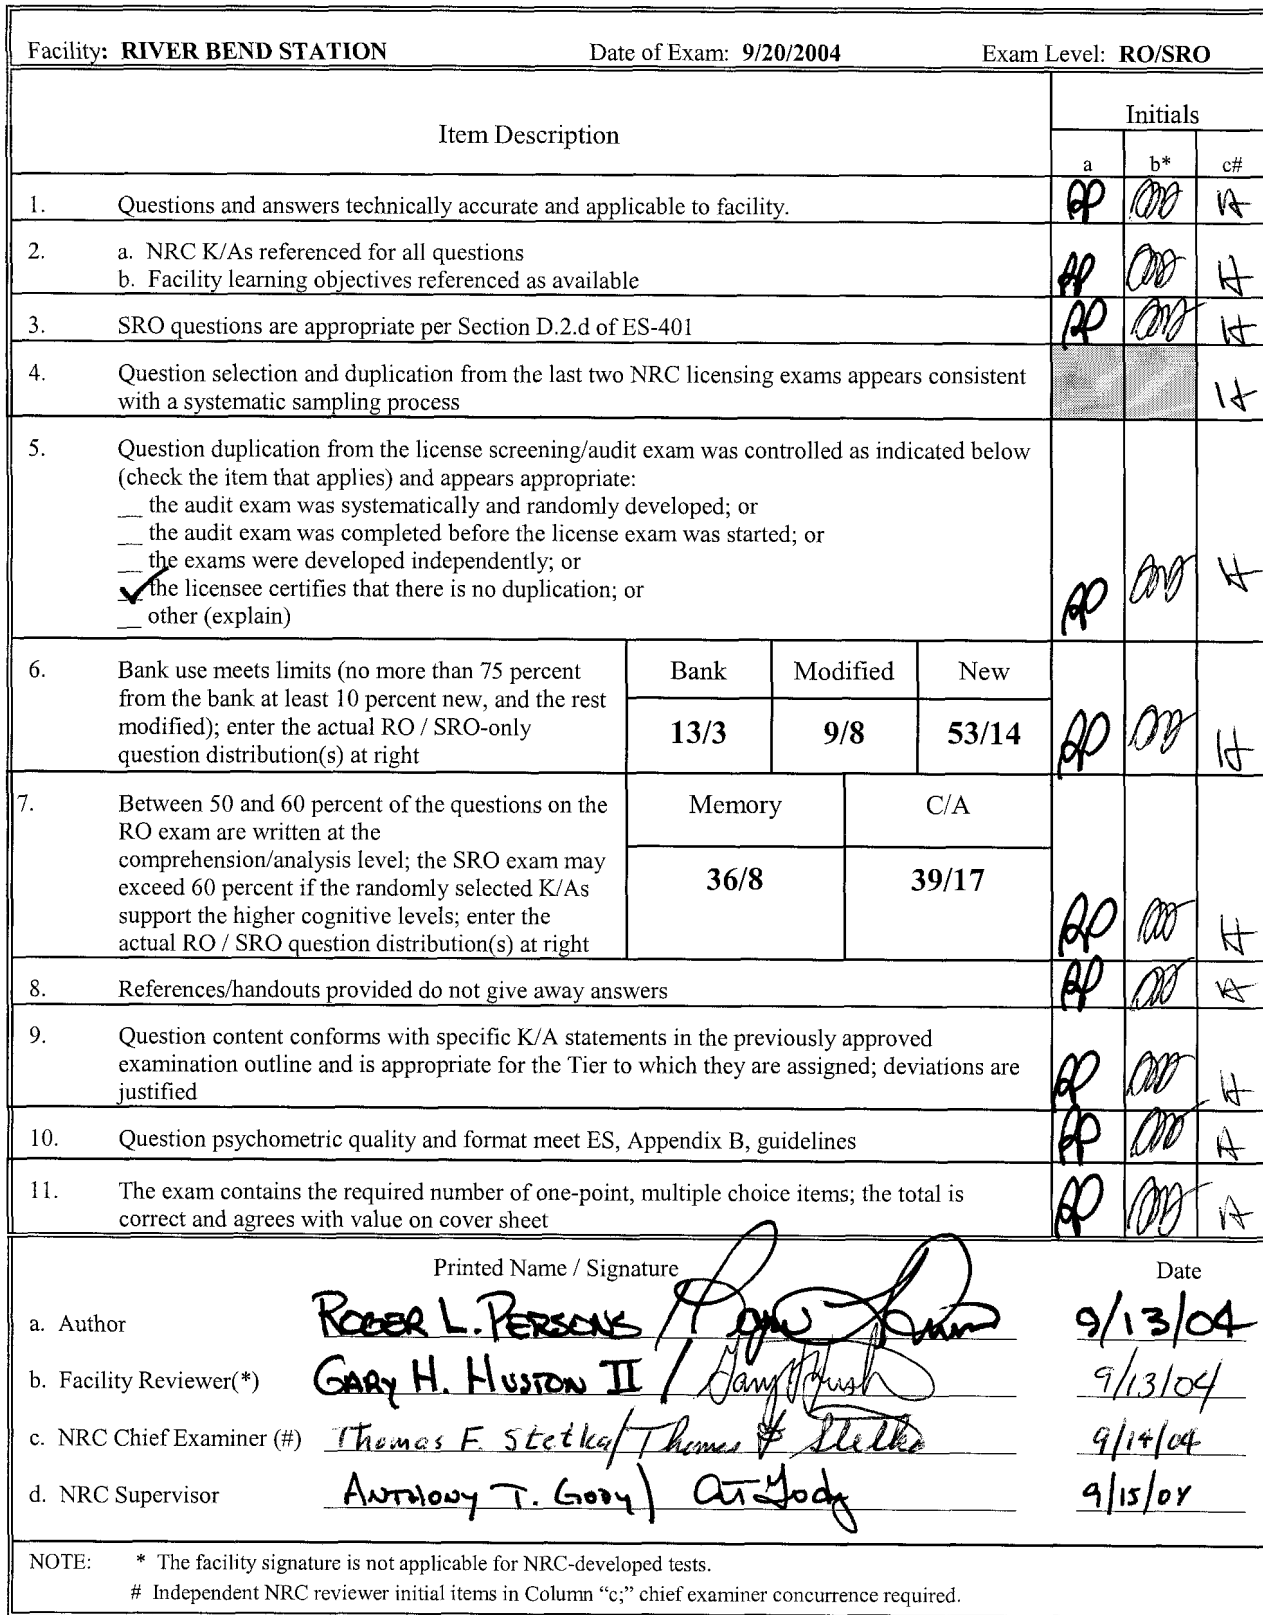 Facility: RIVER BEND STATION Date of Exam: 9/20/2004 Exam Level: RO/SRO
Item Description
Initials
a b* c#
1. Questions and answers technically accurate and applicable to facility.
2. a. NRC K/As referenced for all questions
b. Facility learning objectives referenced as available
3. SRO questions are appropriate per Section D.2.d of ES-401
4. Question selection and duplication from the last two NRC licensing exams appears consistent
with a systematic sampling process
5. Question duplication from the license screening/audit exam was controlled as indicated below
(check the item that applies) and appears appropriate:
__ the audit exam was systematically and randomly developed; or
__ the audit exam was completed before the license exam was started; or
__ the exams were developed independently; or
✓ the licensee certifies that there is no duplication; or
__ other (explain)
6. Bank use meets limits (no more than 75 percent
from the bank at least 10 percent new, and the rest
modified); enter the actual RO / SRO-only
question distribution(s) at right
Bank Modified New
13/3 9/8 53/14
7. Between 50 and 60 percent of the questions on the
RO exam are written at the
comprehension/analysis level; the SRO exam may
exceed 60 percent if the randomly selected K/As
support the higher cognitive levels; enter the
actual RO / SRO question distribution(s) at right
Memory C/A
36/8 39/17
8. References/handouts provided do not give away answers
9. Question content conforms with specific K/A statements in the previously approved
examination outline and is appropriate for the Tier to which they are assigned; deviations are
justified
10. Question psychometric quality and format meet ES, Appendix B, guidelines
11. The exam contains the required number of one-point, multiple choice items; the total is
correct and agrees with value on cover sheet
Printed Name / Signature Date
a. Author ROGER L. PERSONS / 9/13/04
b. Facility Reviewer(*) GARY H. HUSTON II / 9/13/04
c. NRC Chief Examiner (#) Thomas F. Stetka / Thomas F Stetka 9/14/04
d. NRC Supervisor ANTHONY T. GODY / AT Gody 9/15/04
NOTE: * The facility signature is not applicable for NRC-developed tests.
# Independent NRC reviewer initial items in Column "c;" chief examiner concurrence required.